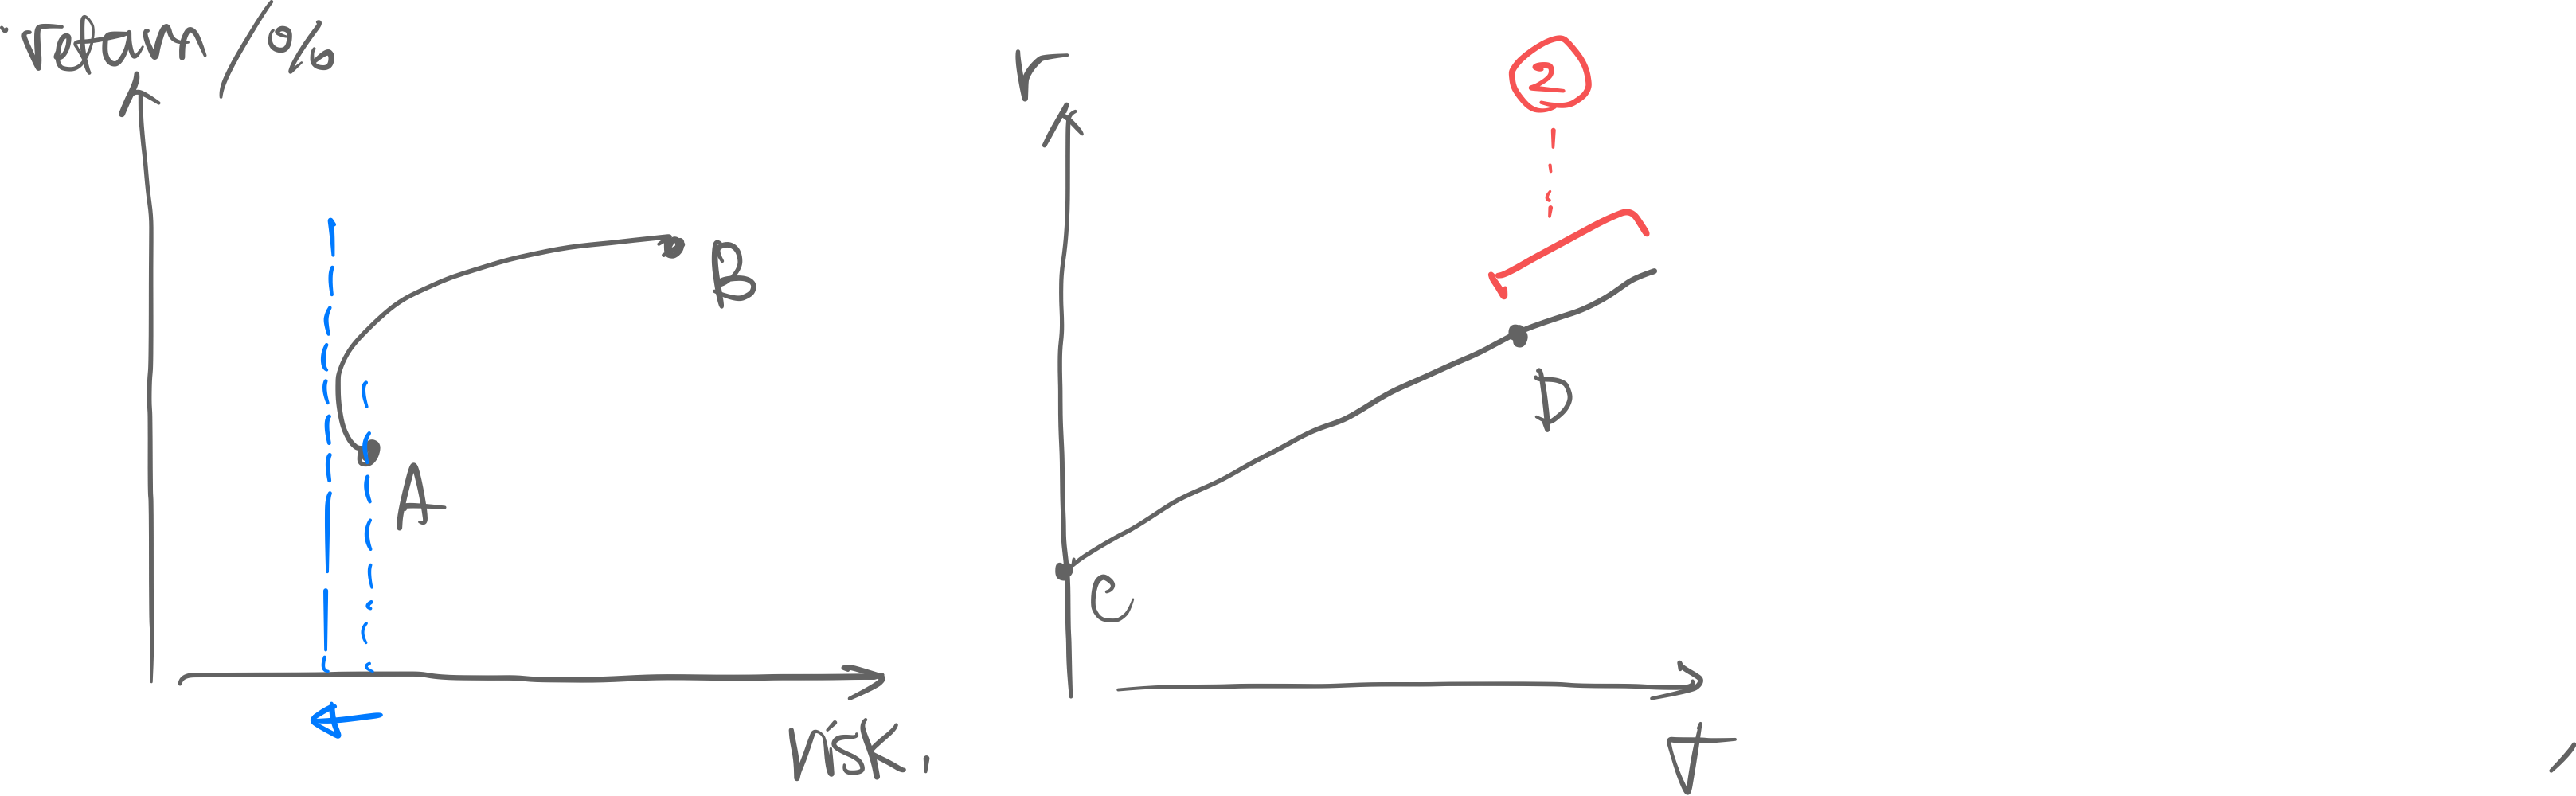 return /%
B
A
risk.
r
2
D
C
σ